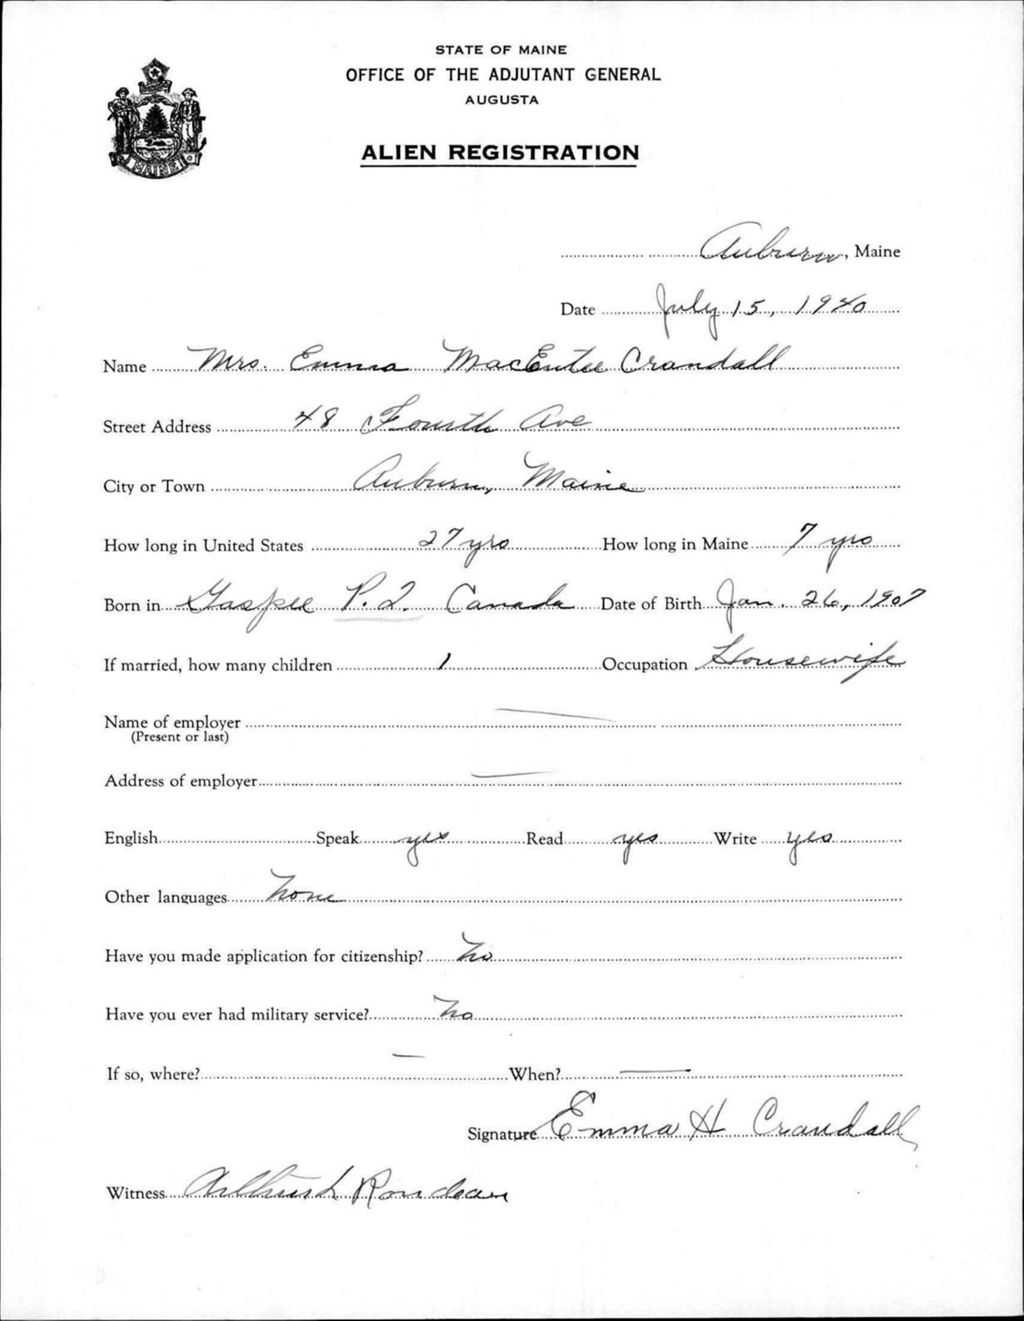 STATE OF MAINE
OFFICE OF THE ADJUTANT GENERAL
AUGUSTA
ALIEN REGISTRATION
MAINE
Auburn, Maine
Date July 15, 1940
Name Mrs. Emma MacEntee Crandall
Street Address 48 Fourth Ave
City or Town Auburn, Maine
How long in United States 27 yrs How long in Maine 7 yrs
Born in Gaspee P.Q. Canada Date of Birth Jan. 26, 1907
If married, how many children 1 Occupation Housewife
Name of employer
(Present or last)
Address of employer
English Speak yes Read yes Write yes
Other languages none
Have you made application for citizenship? no
Have you ever had military service? no
If so, where? — When? —
Signature Emma H Crandall
Witness Rondeau